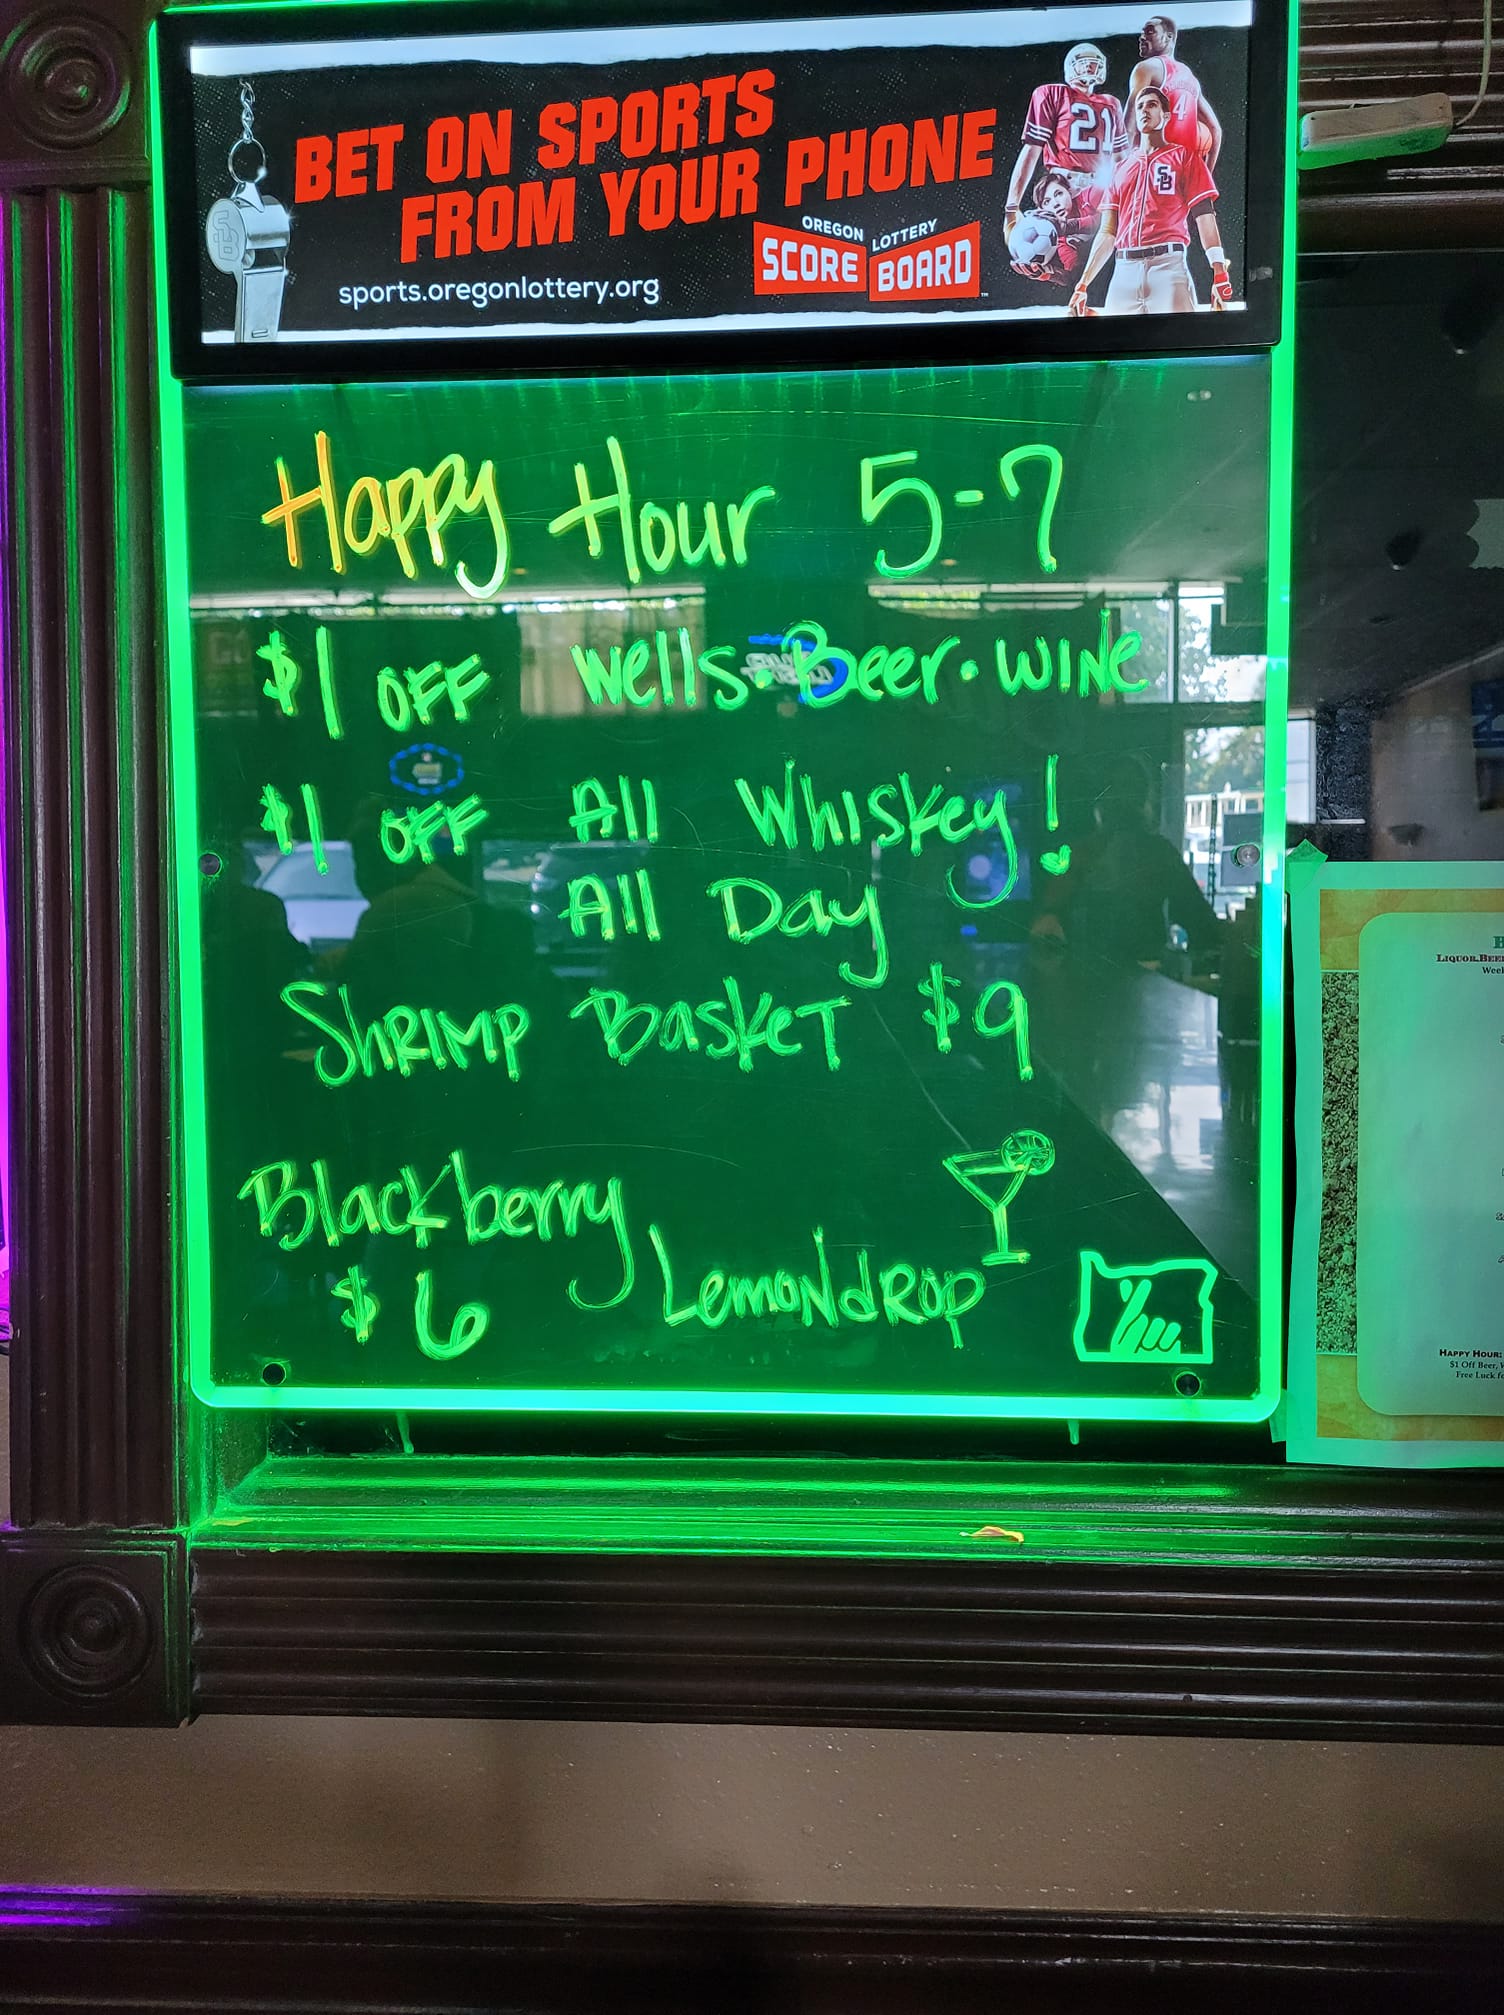 BET ON SPORTS
FROM YOUR PHONE
sports.oregonlottery.org
OREGON LOTTERY
SCORE BOARD
TM
21
4
SB
SB
Happy Hour 5-7
$1 OFF Wells·Beer·WINe
$1 OFF All Whiskey!
All Day
ShRIMP BaskeT $9
Blackberry
LemoNdRop
$6
LIQUOR.BEE
Week
HAPPY HOUR:
$1 Off Beer, W
Free Luck fo